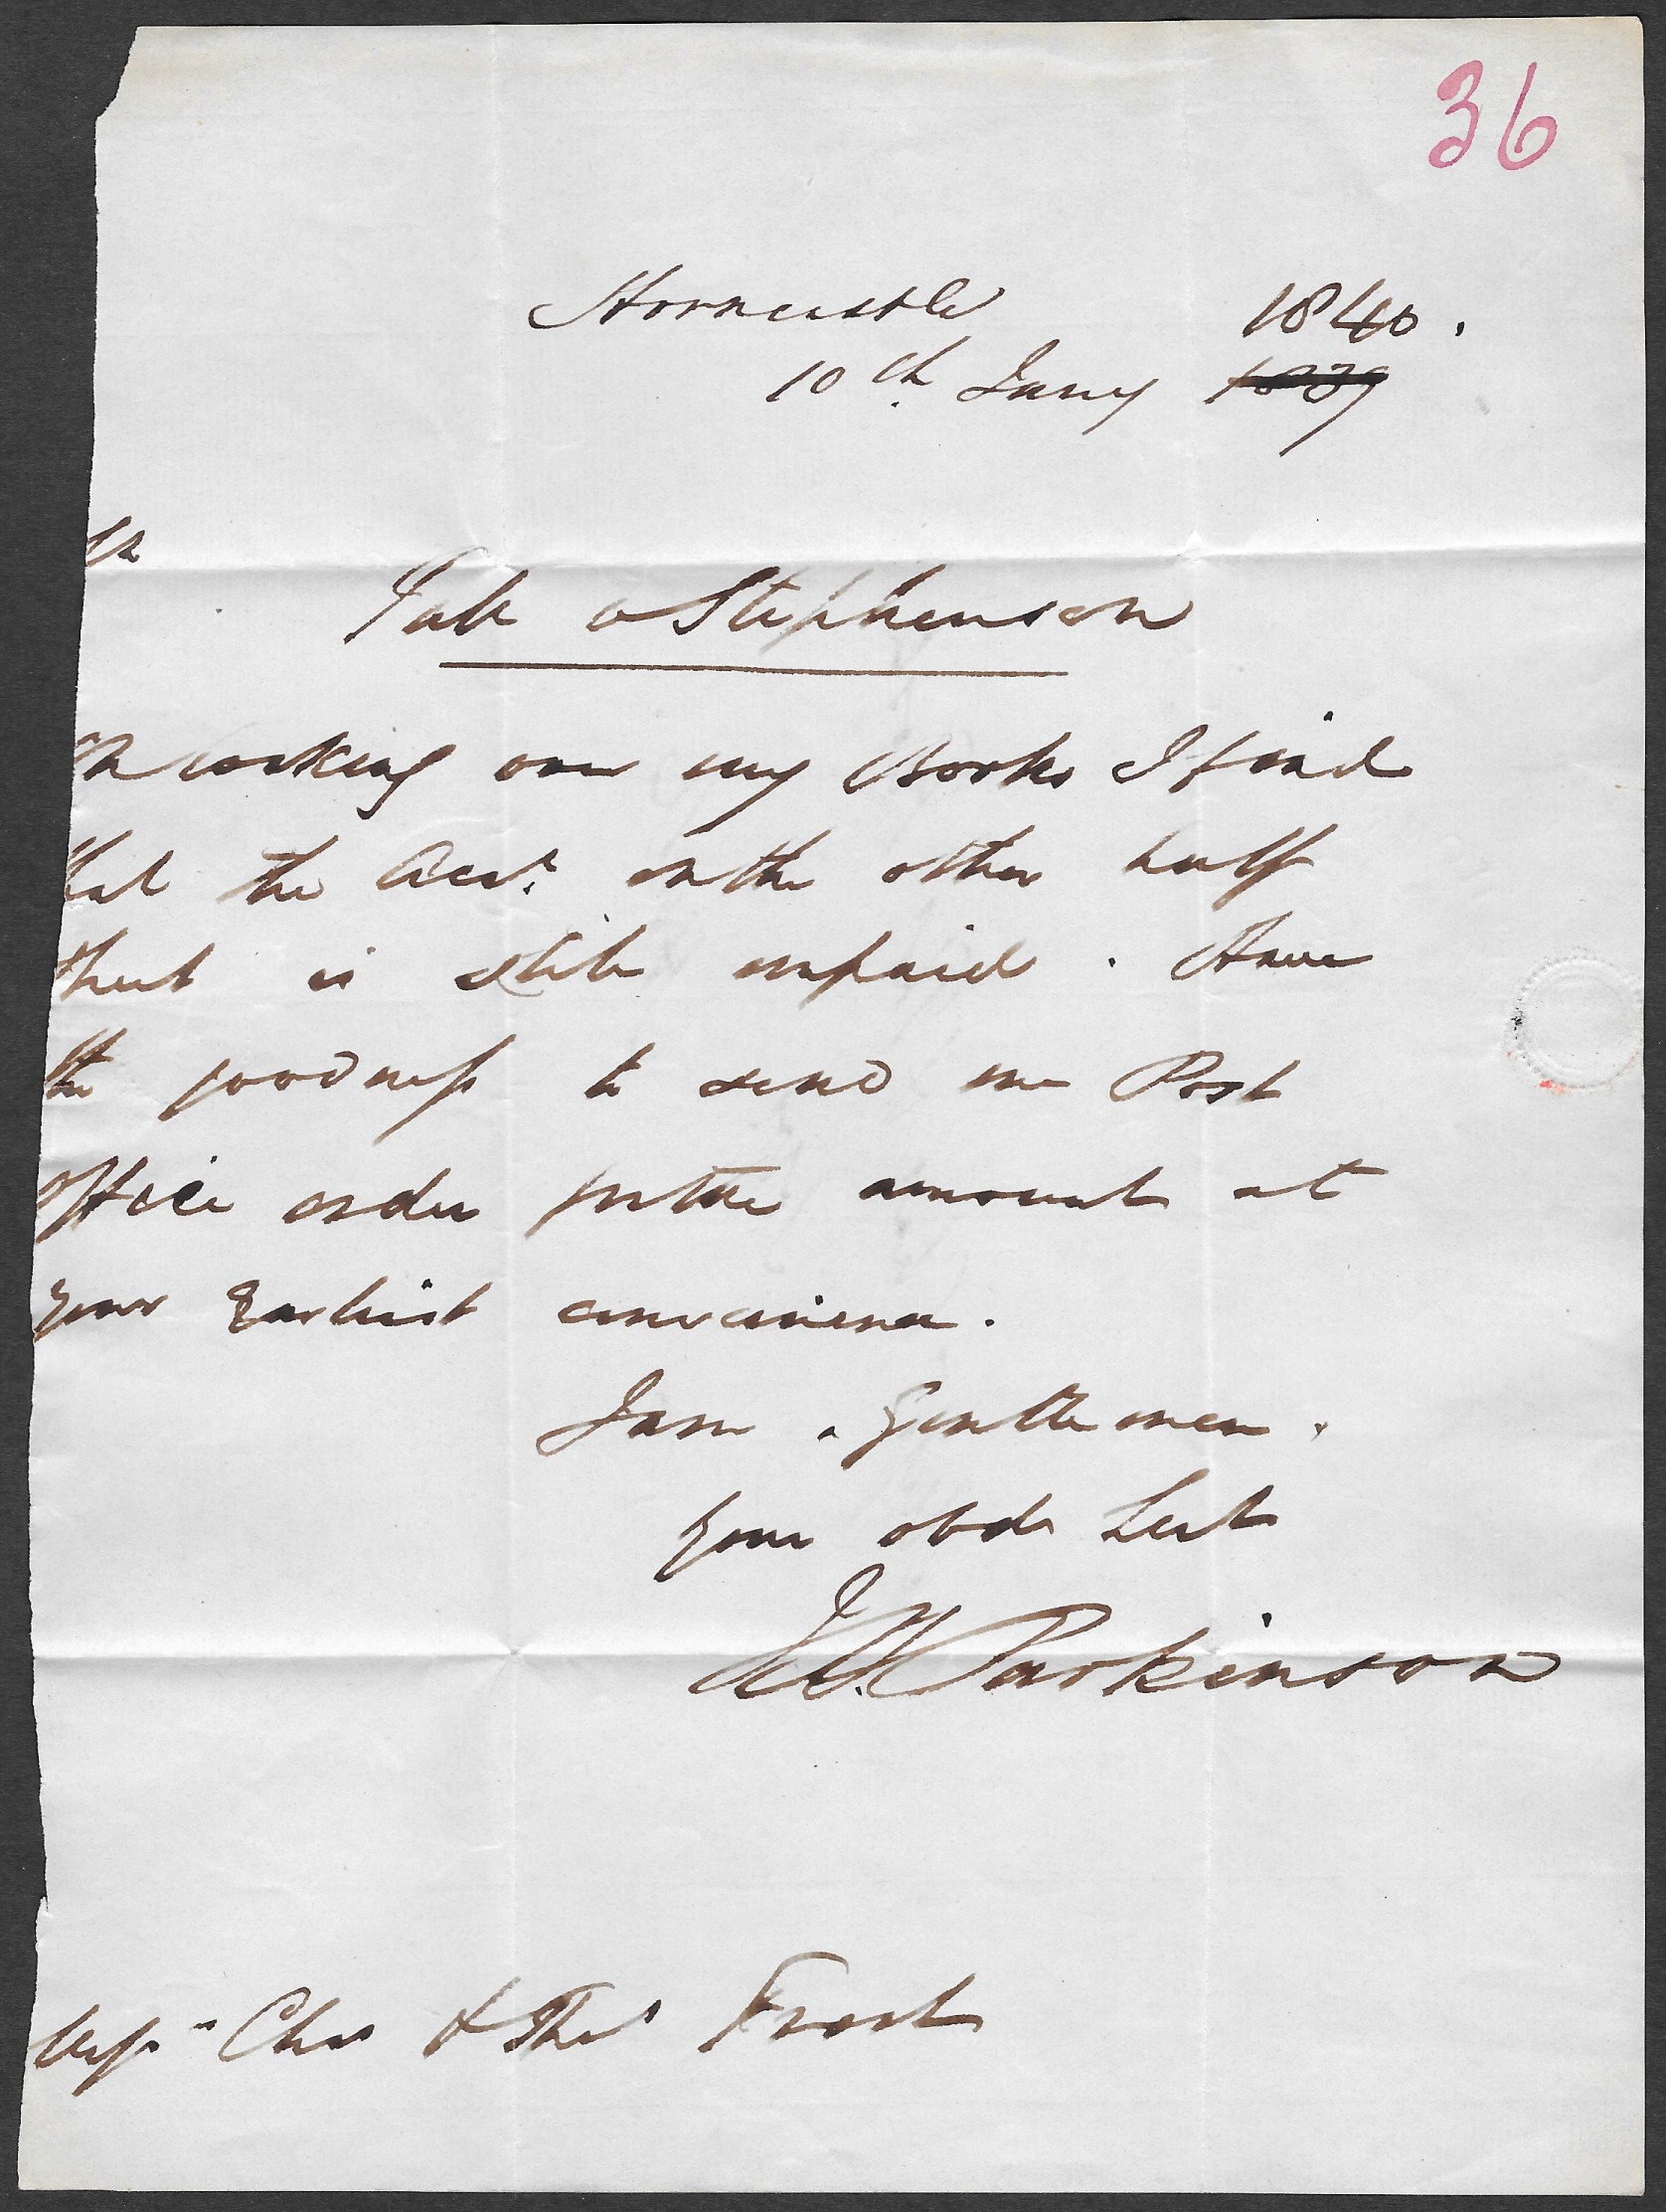 36
Horncastle 1840.
10th Jany 1839
Stephenson
looking over my Books I find
that the Acct. on the other half
sheet is still unpaid. Have
the goodness to send me Post
office order for the amount at
your Earliest convenience.
I am, Gentlemen,
Your obdt Sert
Parkinson
Messrs Chas & Thos Frost